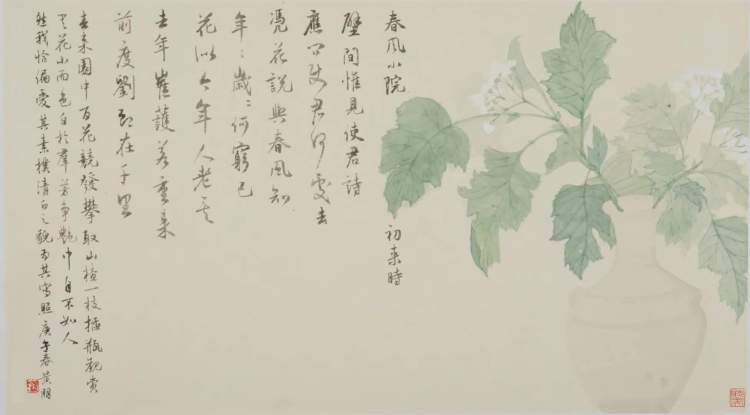 春風小院 初来時
壁間惟見使君詩
應问使君何處去
憑花說與春風知
年〻歲〻何窮已
花似今年人老矣
去年崔護若重来
前度劉郎在千里
春来園中百花競發攀取山楂一枝插瓶觀賞
其花小而色白於群芳争艷中自不如人
然我恰偏愛其素樸清白之貌為其寫照庚午春黄朋